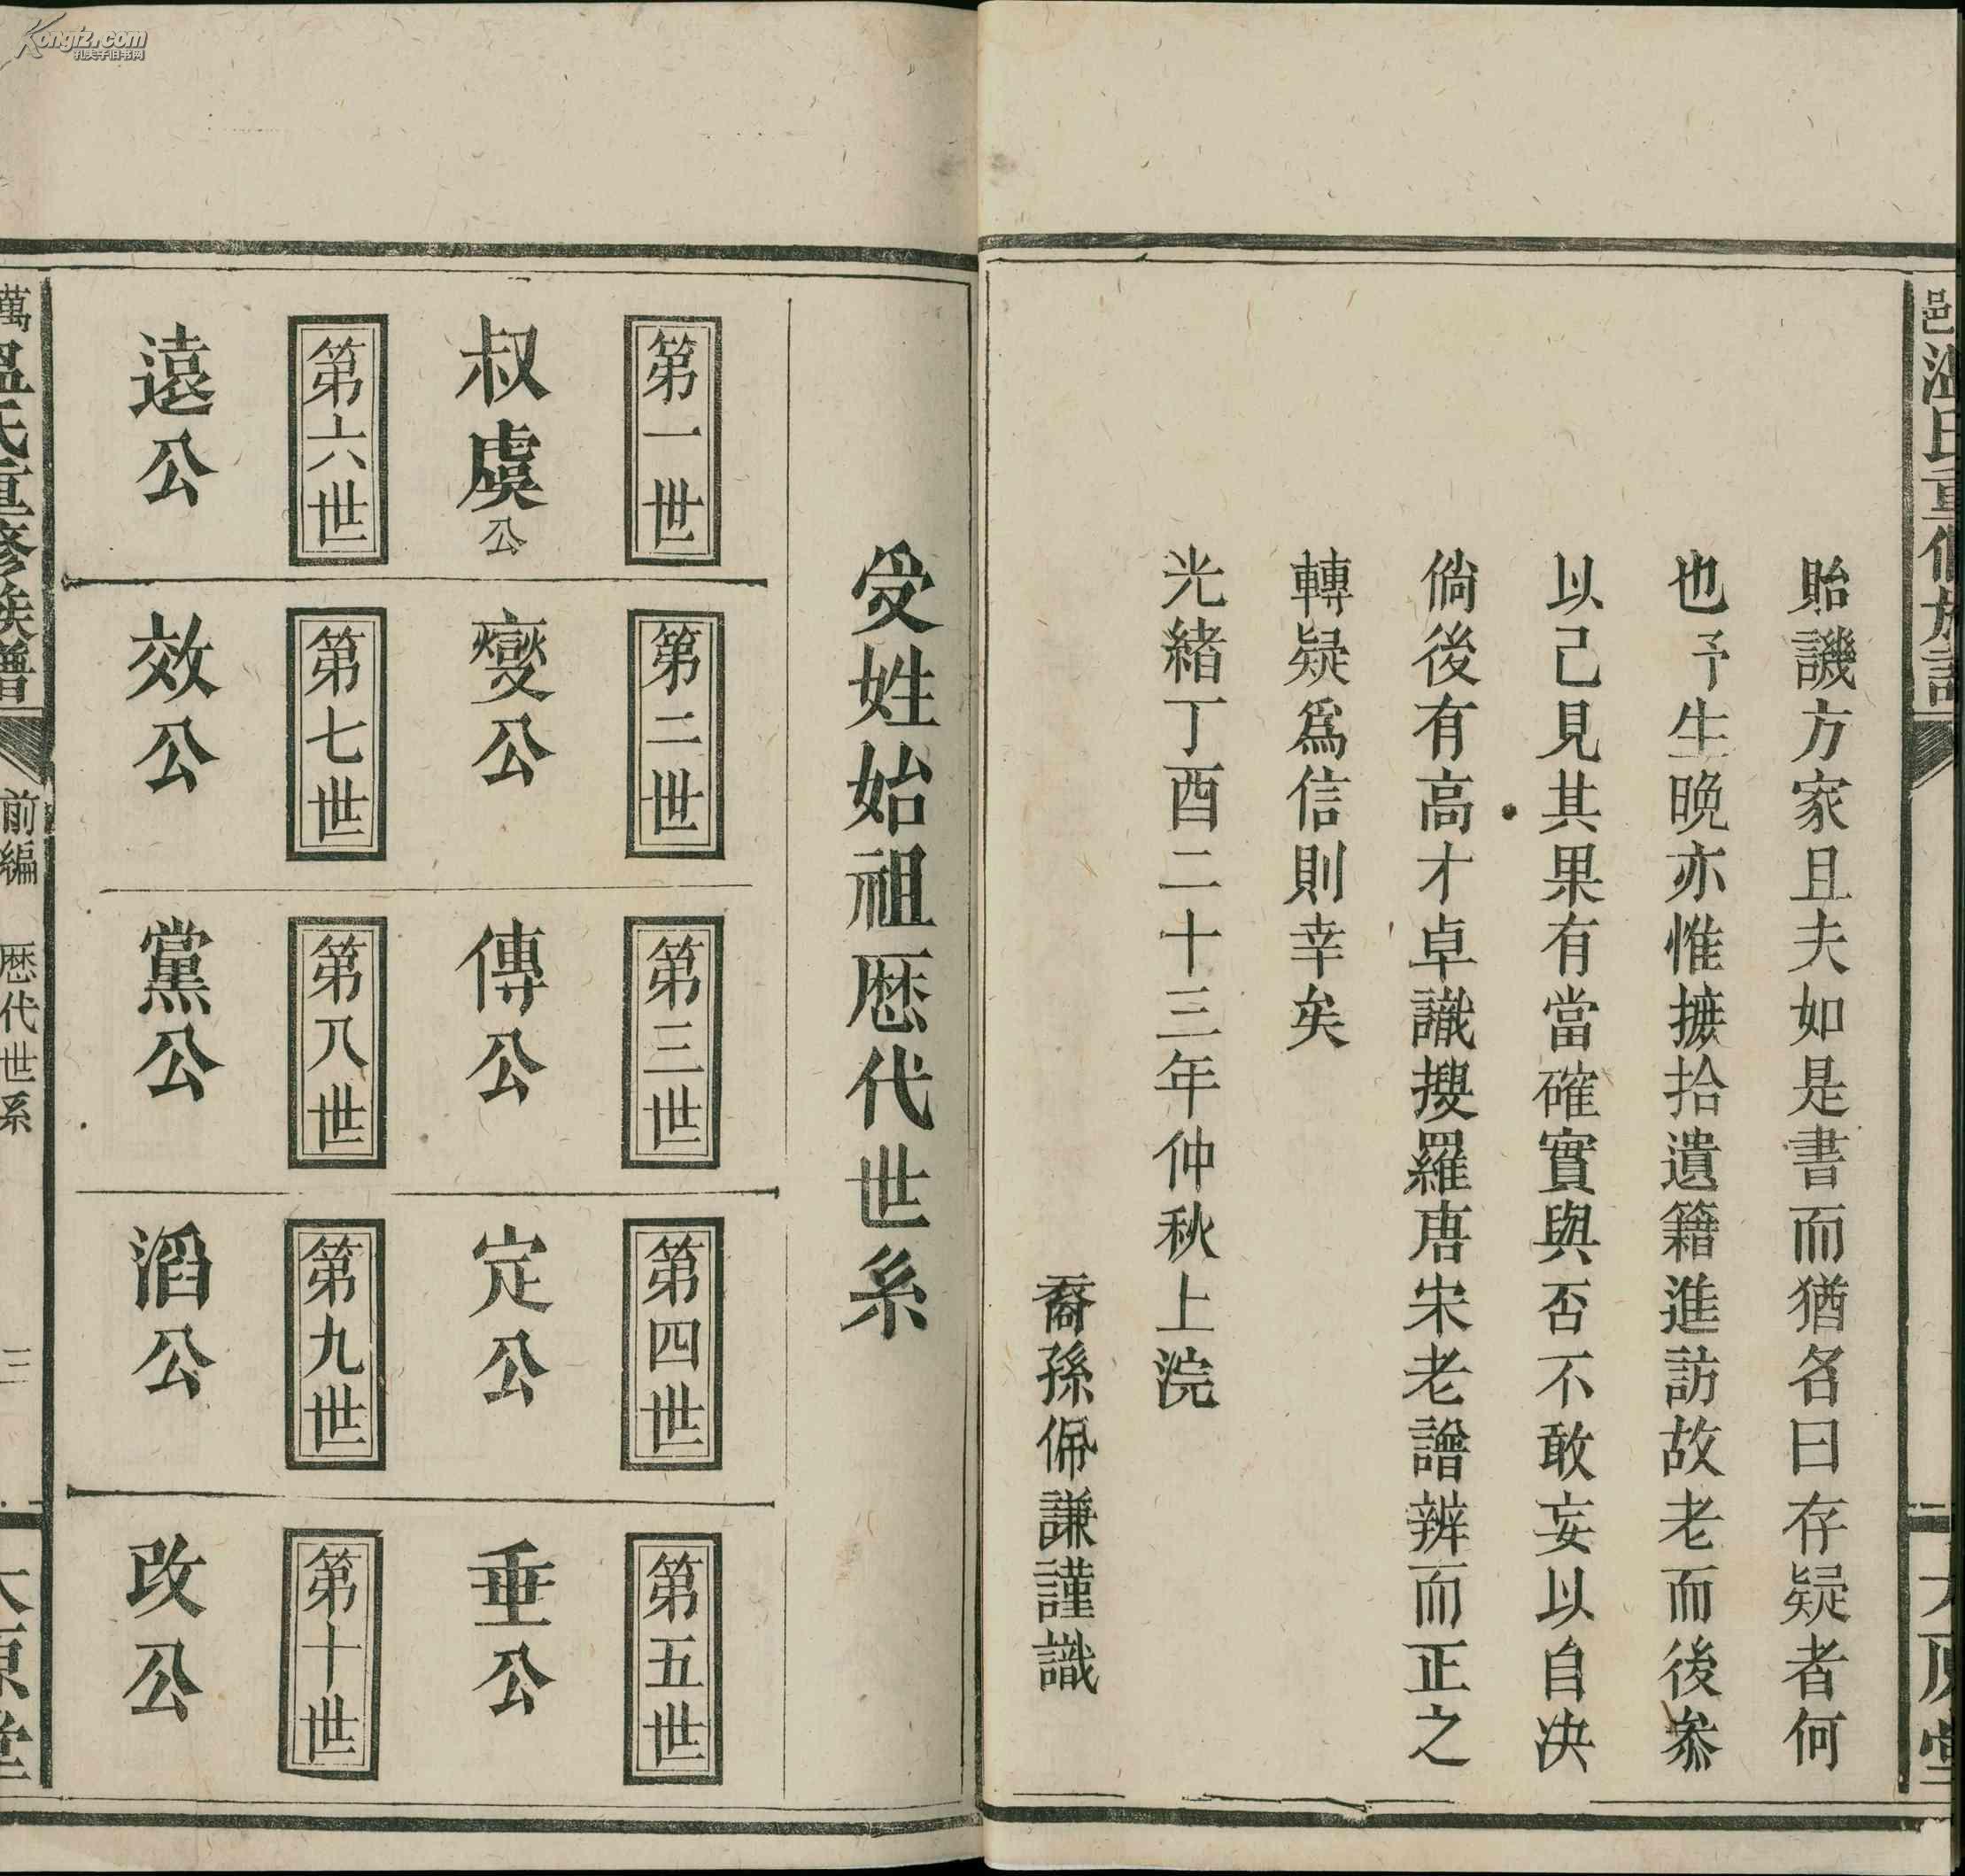 貽譏方家且夫如是書而猶名曰存疑者何
也予生晚亦惟摭拾遺籍進訪故老而後叅
以己見其果有當確實與否不敢妄以自决
倘後有高才卓識搜羅唐宋老譜辨而正之
轉疑爲信則幸矣
光緒丁酉二十三年仲秋上浣
裔孫佩謙謹識
受姓始祖歷代世系
第一世
叔虞公
第六世
遠公
第二世
變公
第七世
效公
第三世
傳公
第八世
黨公
第四世
定公
第九世
滔公
第五世
垂公
第十世
改公
萬
溫氏重修族譜
前編
歷代世系
三
太原堂
邑
溫氏重修族譜
太原堂
Kongfz.com
孔夫子旧书网